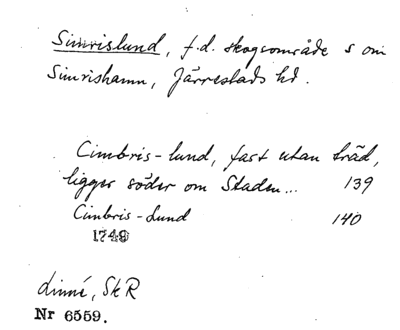 Simrislund, f.d. skogsområde s om
Simrishamn, Järrestads hd.
Cimbris-lund, fast utan träd,
ligger söder om Staden... 139
Cimbris-Lund 140
1749
Linné, SkR
Nr 6559.